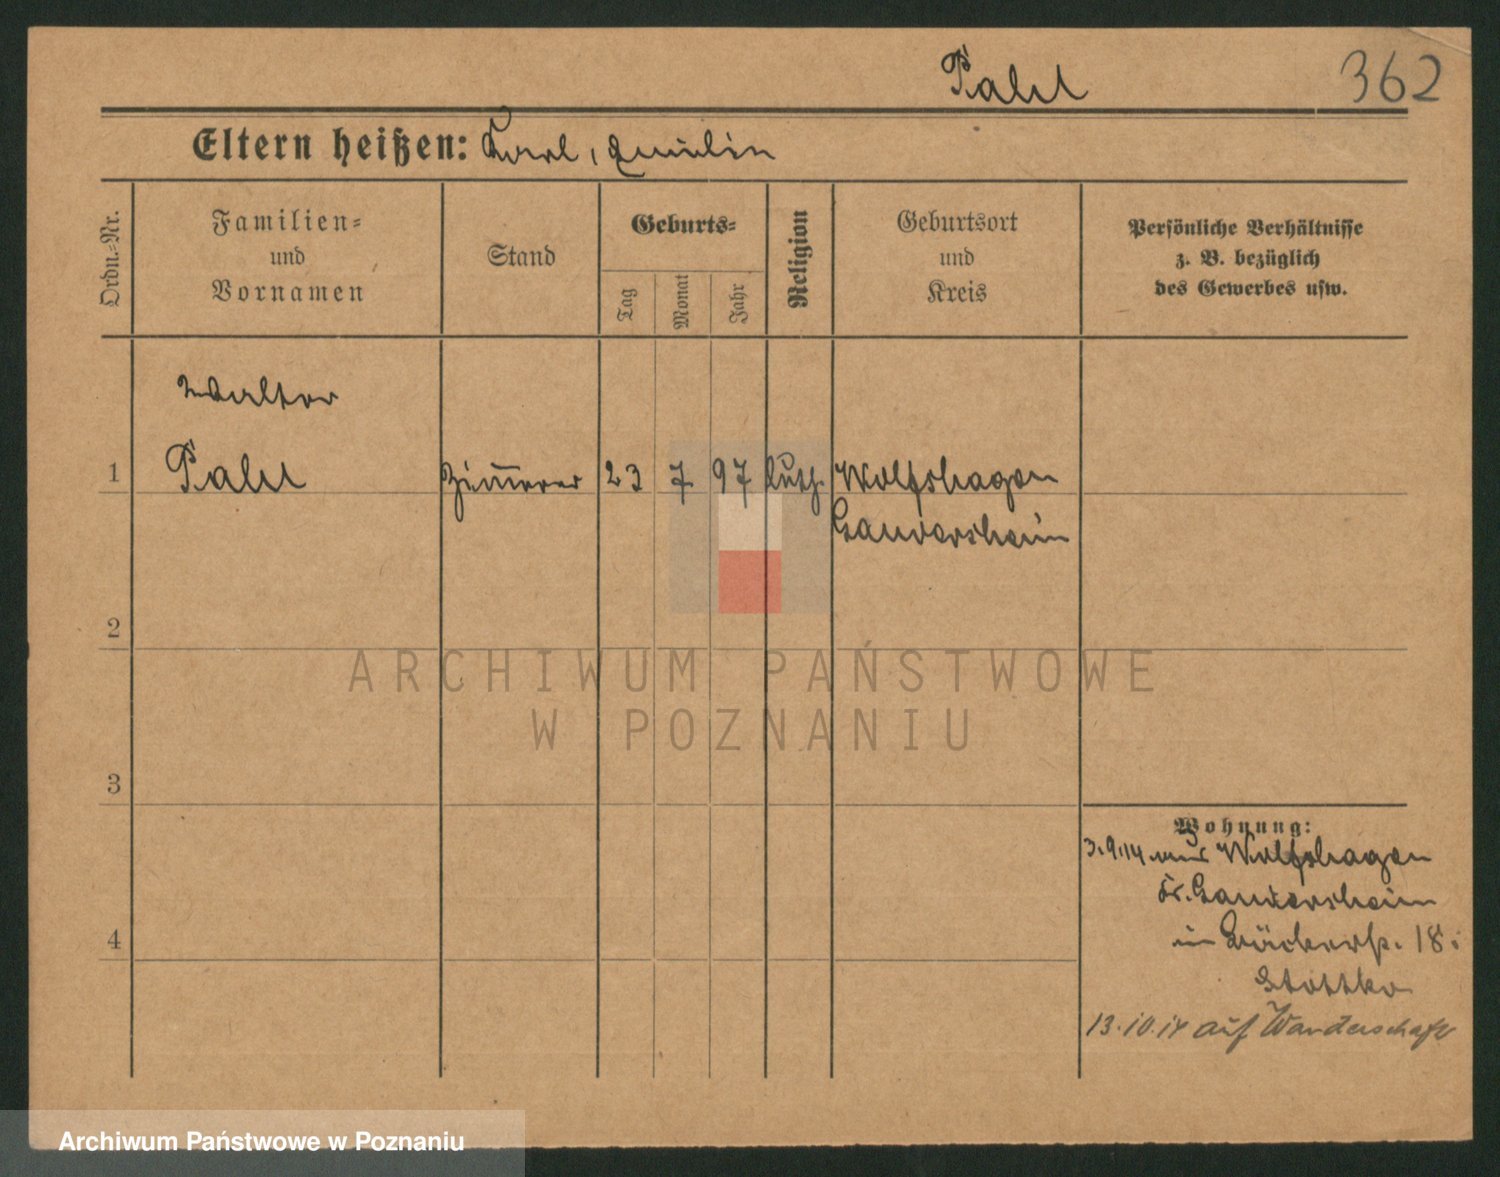 Pahl
362
Eltern heißen: Karl, Emilie
Ordn.=Nr.
Familien=
und
Vornamen
Stand
Geburts=
Tag
Monat
Jahr
Religion
Geburtsort
und
Kreis
Persönliche Verhältnisse
z. B. bezüglich
des Gewerbes usw.
Walter
1 Pahl Zim̅erer 23 7 97 luth. Wolfshagen
Gandersheim
2
ARCHIWUM PAŃSTWOWE
W POZNANIU
3
Wohnung:
3.9.14 aus Wolfshagen
Kr. Gandersheim
in Bäckerstr. 18.
13.10.14 auf Wanderschaft
4
Archiwum Państwowe w Poznaniu